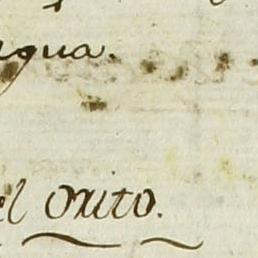 agua.
el Orito.